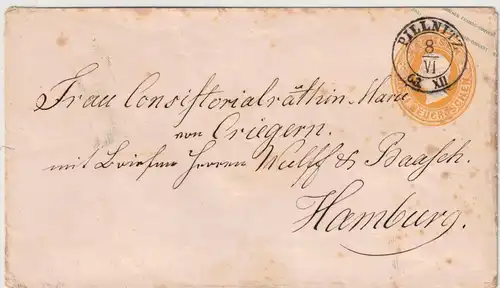 PILLNITZ
8
VI
63 XII
NEUGROSCHEN
Frau Consistorialräthin Marie
von Criegern.
mit Briefen Herren Wulff & Baasch.
Hamburg.